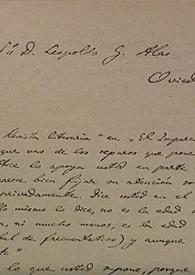 Sr D. Leopoldo G. Alas.
Ovied
Revista literaria" en "El Imparc
que uno de los reparos que pone
apoya usted en parte
parece bien fijar su atención so
privadamente. Dice usted en el
lo mismo lo dice, no es la edad
ni mucho menos, es la edad
de frecuentativo) y aunque
lo que usted supone, porque